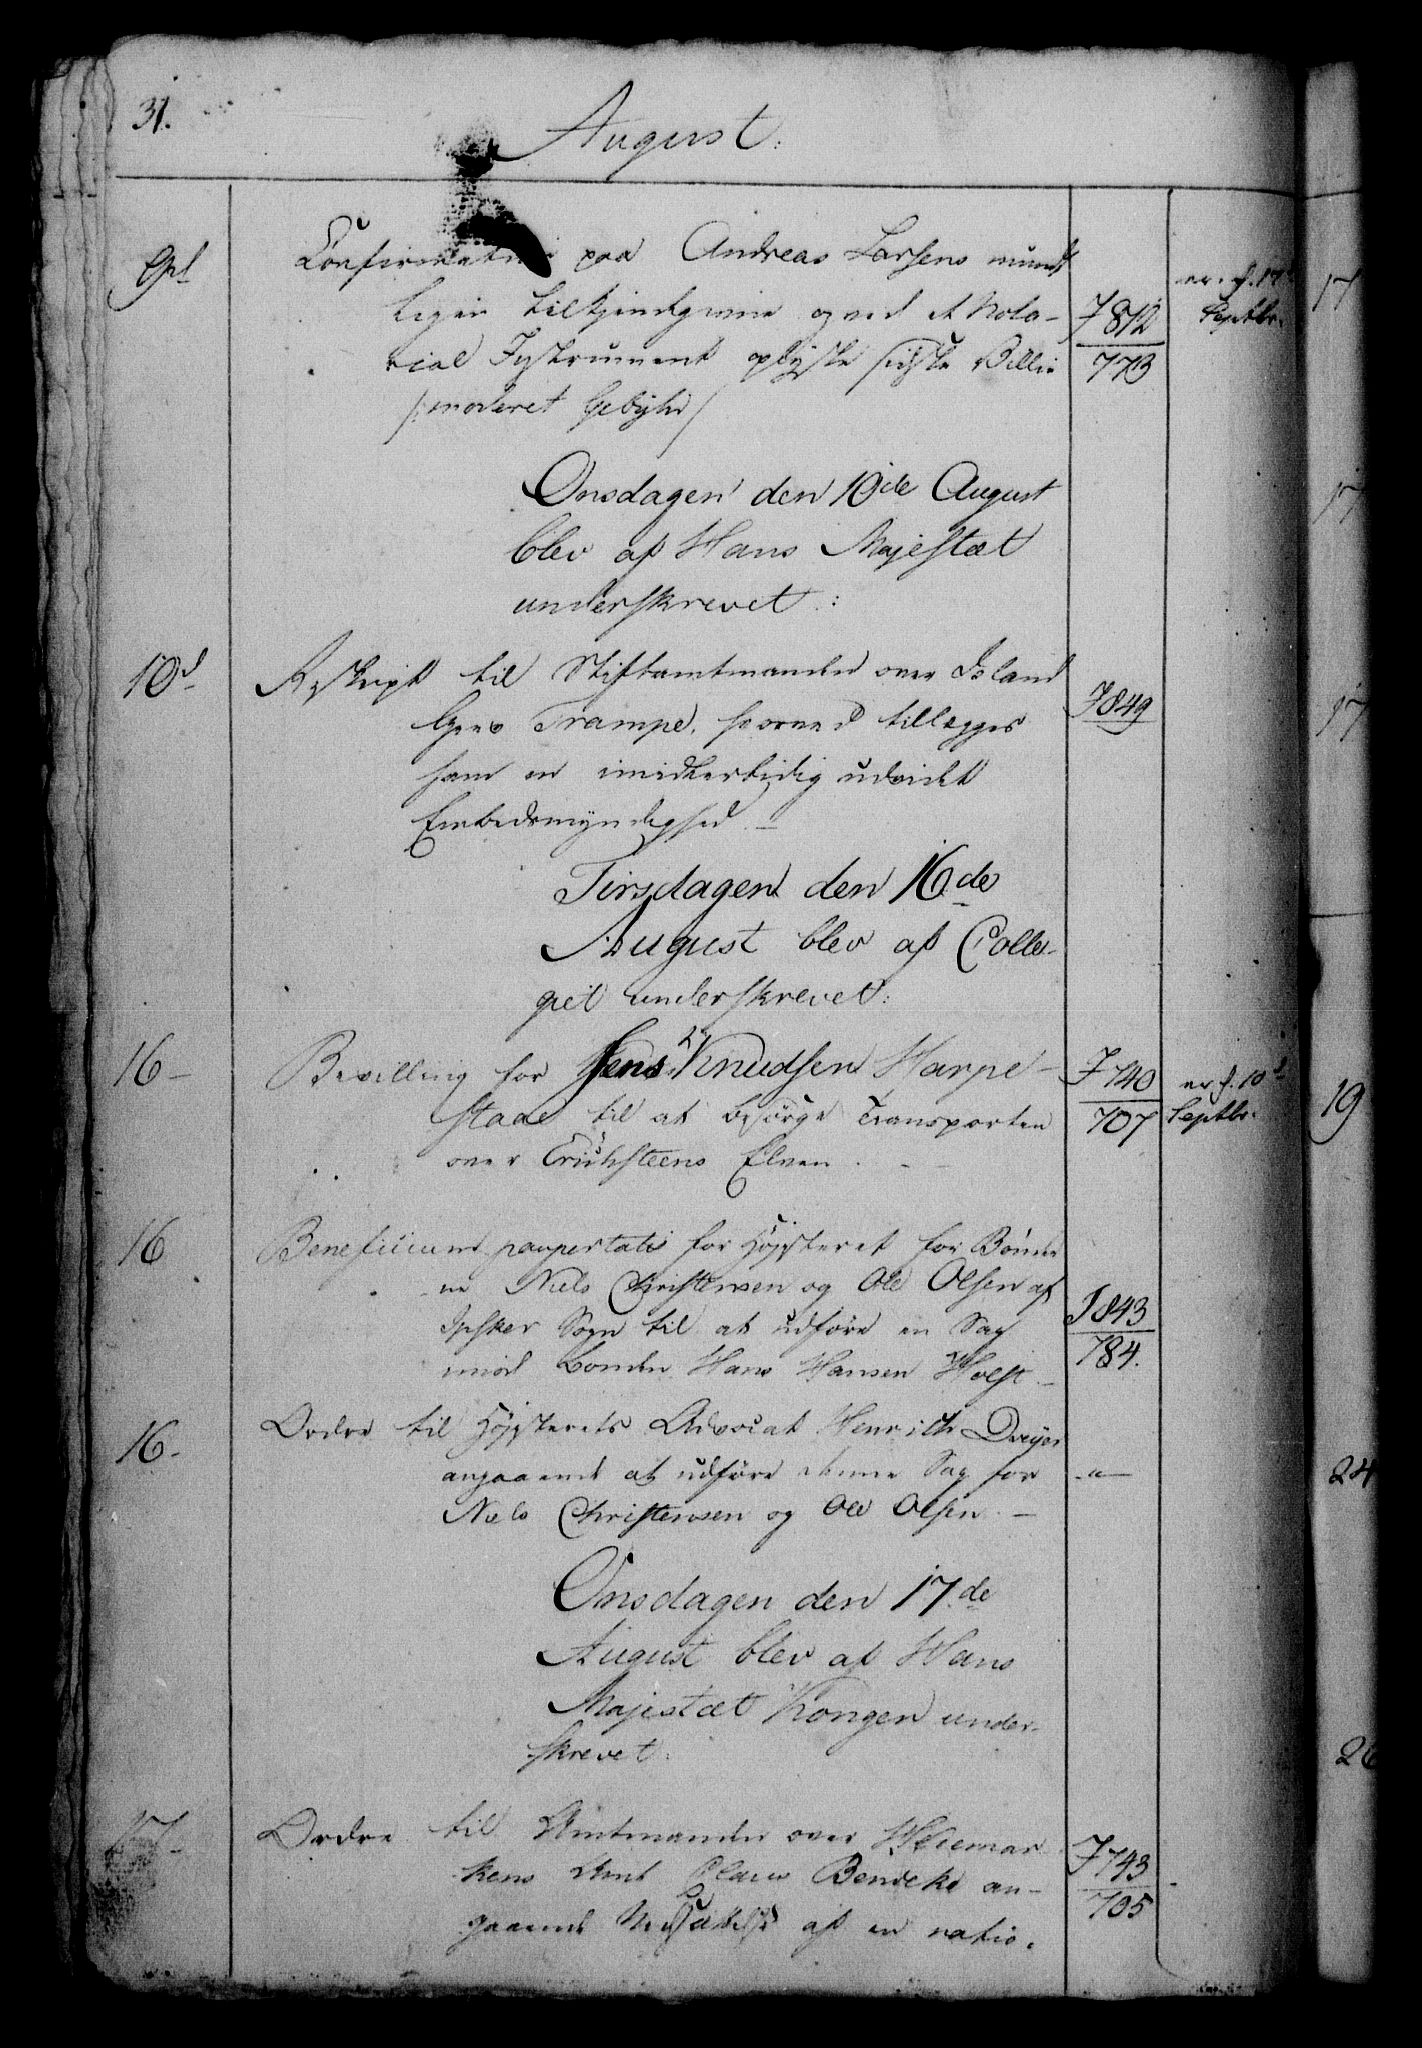 31.
August.
9d
Confirmation paa Andreas Larsens mundt
ligen tilkjendgivne og ved et Nota-
rial Instrument oplyste sidste Villie
/: moderet Gebyhr /
J 812
773
Septbr.
Onsdagen den 10de August
blev af Hans Majestæt
underskrevet:
10d
Rescript til Stiftamtmanden over Island
Grev Trampe, hvorved tillægges
ham en imidlertidig udvidet
Embedsmyndighed. —
J 849
Tirsdagen den 16de
August blev af Colle-
giet underskrevet:
16 —
Bevilling for Jens Knudsen Harpe-
stad til at besørge Transporten
over Elven. —
J 740
707
Septbr.
16
Beneficium paupertatis for Højesteret for Bønder
ne Niels Christensen og Ole Olsen af
Ipsker Sogn til at udføre en Sag
mod Bonden Hans Hansen Holst —
J 843
784.
16 -
Ordre til Højesterets Advocat Henrich
angaaende at udføre denne Sag for
Niels Christensen og Ole Olsen. —
-"-
Onsdagen den 17de
August blev af Hans
Majestæt Kongen under-
skrevet:
17 -
Ordre til Amtmanden over Hedemar
kens Amt Claus Bendeke an-
gaaende af en natio-
J 743
705
17
17
17
19
24
26